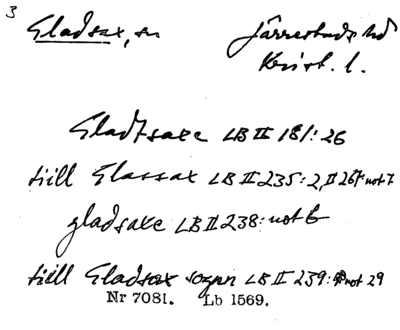 3
Gladsax, sn Järrestads hd
Krist. l.
Gladsaxe LB II 181: 26
till Glassax LB II 235: 2, II 267: not 7
gladsaxe LB II 238: not 6
till Gladsax sogn LB II 239: not 29
Nr 7081. Lb 1569.